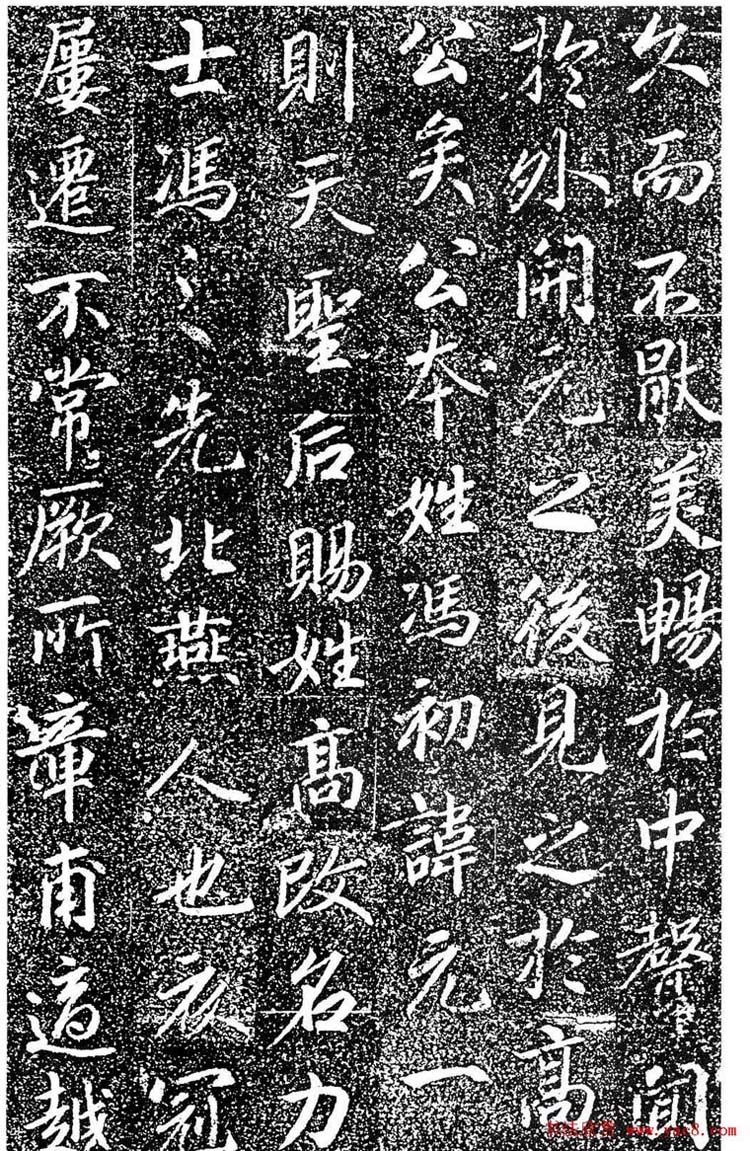 久而不猒美暢於中聲聞
於外開元之後見之於高
公矣公本姓馮初諱元一
則天聖后賜姓高改名力
士馮之先北燕人也衣冠
屢遷不常厥所章甫適越
书法欣赏 www.yac8.com